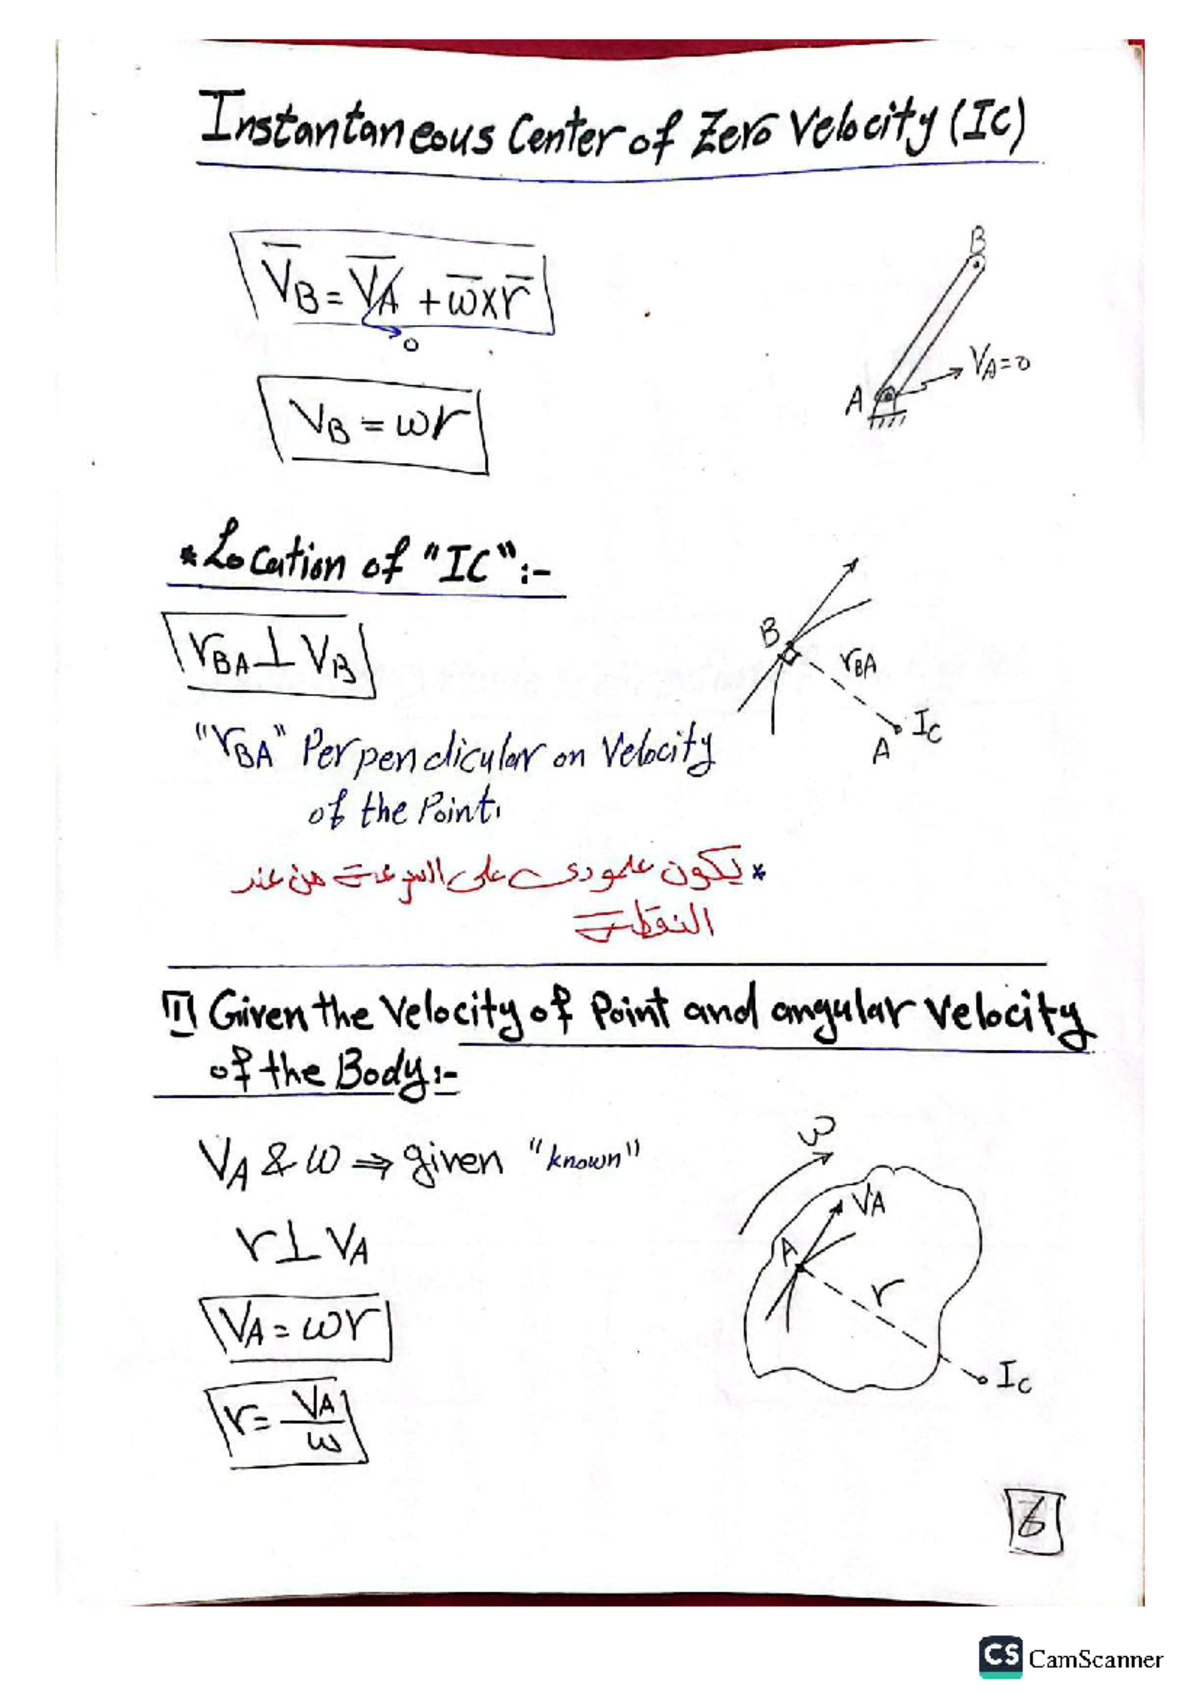 Instantaneous Center of Zero Velocity (IC)
V̅B = V̅A + ω̅ x r̅
0
B
VA = 0
A
VB = ωr
*Location of "IC":-
rBA ⊥ VB
B
rBA
IC
A
"rBA" Perpendicular on Velocity
of the Point.
* يكون عمودى على السرعة من عند
النقطة
1 Given the Velocity of Point and angular Velocity
of the Body:-
VA & ω ⇒ given "known"
ω
VA
A
r ⊥ VA
r
VA = ωr
IC
r = VA/ω
6
CS CamScanner